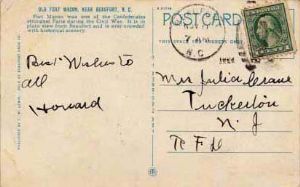 OLD FORT MACON, NEAR BEAUFORT, N. C.
Fort Macon was one of the Confederates
strongest Forts during the Civil War. It is
in plain view from Beaufort and is ever crowded
with historical scenery.
POSTCARD
N. C.
Best Wishes to
all
Howard
Mrs Julia Crane
Tuckerton
N. J
R F D